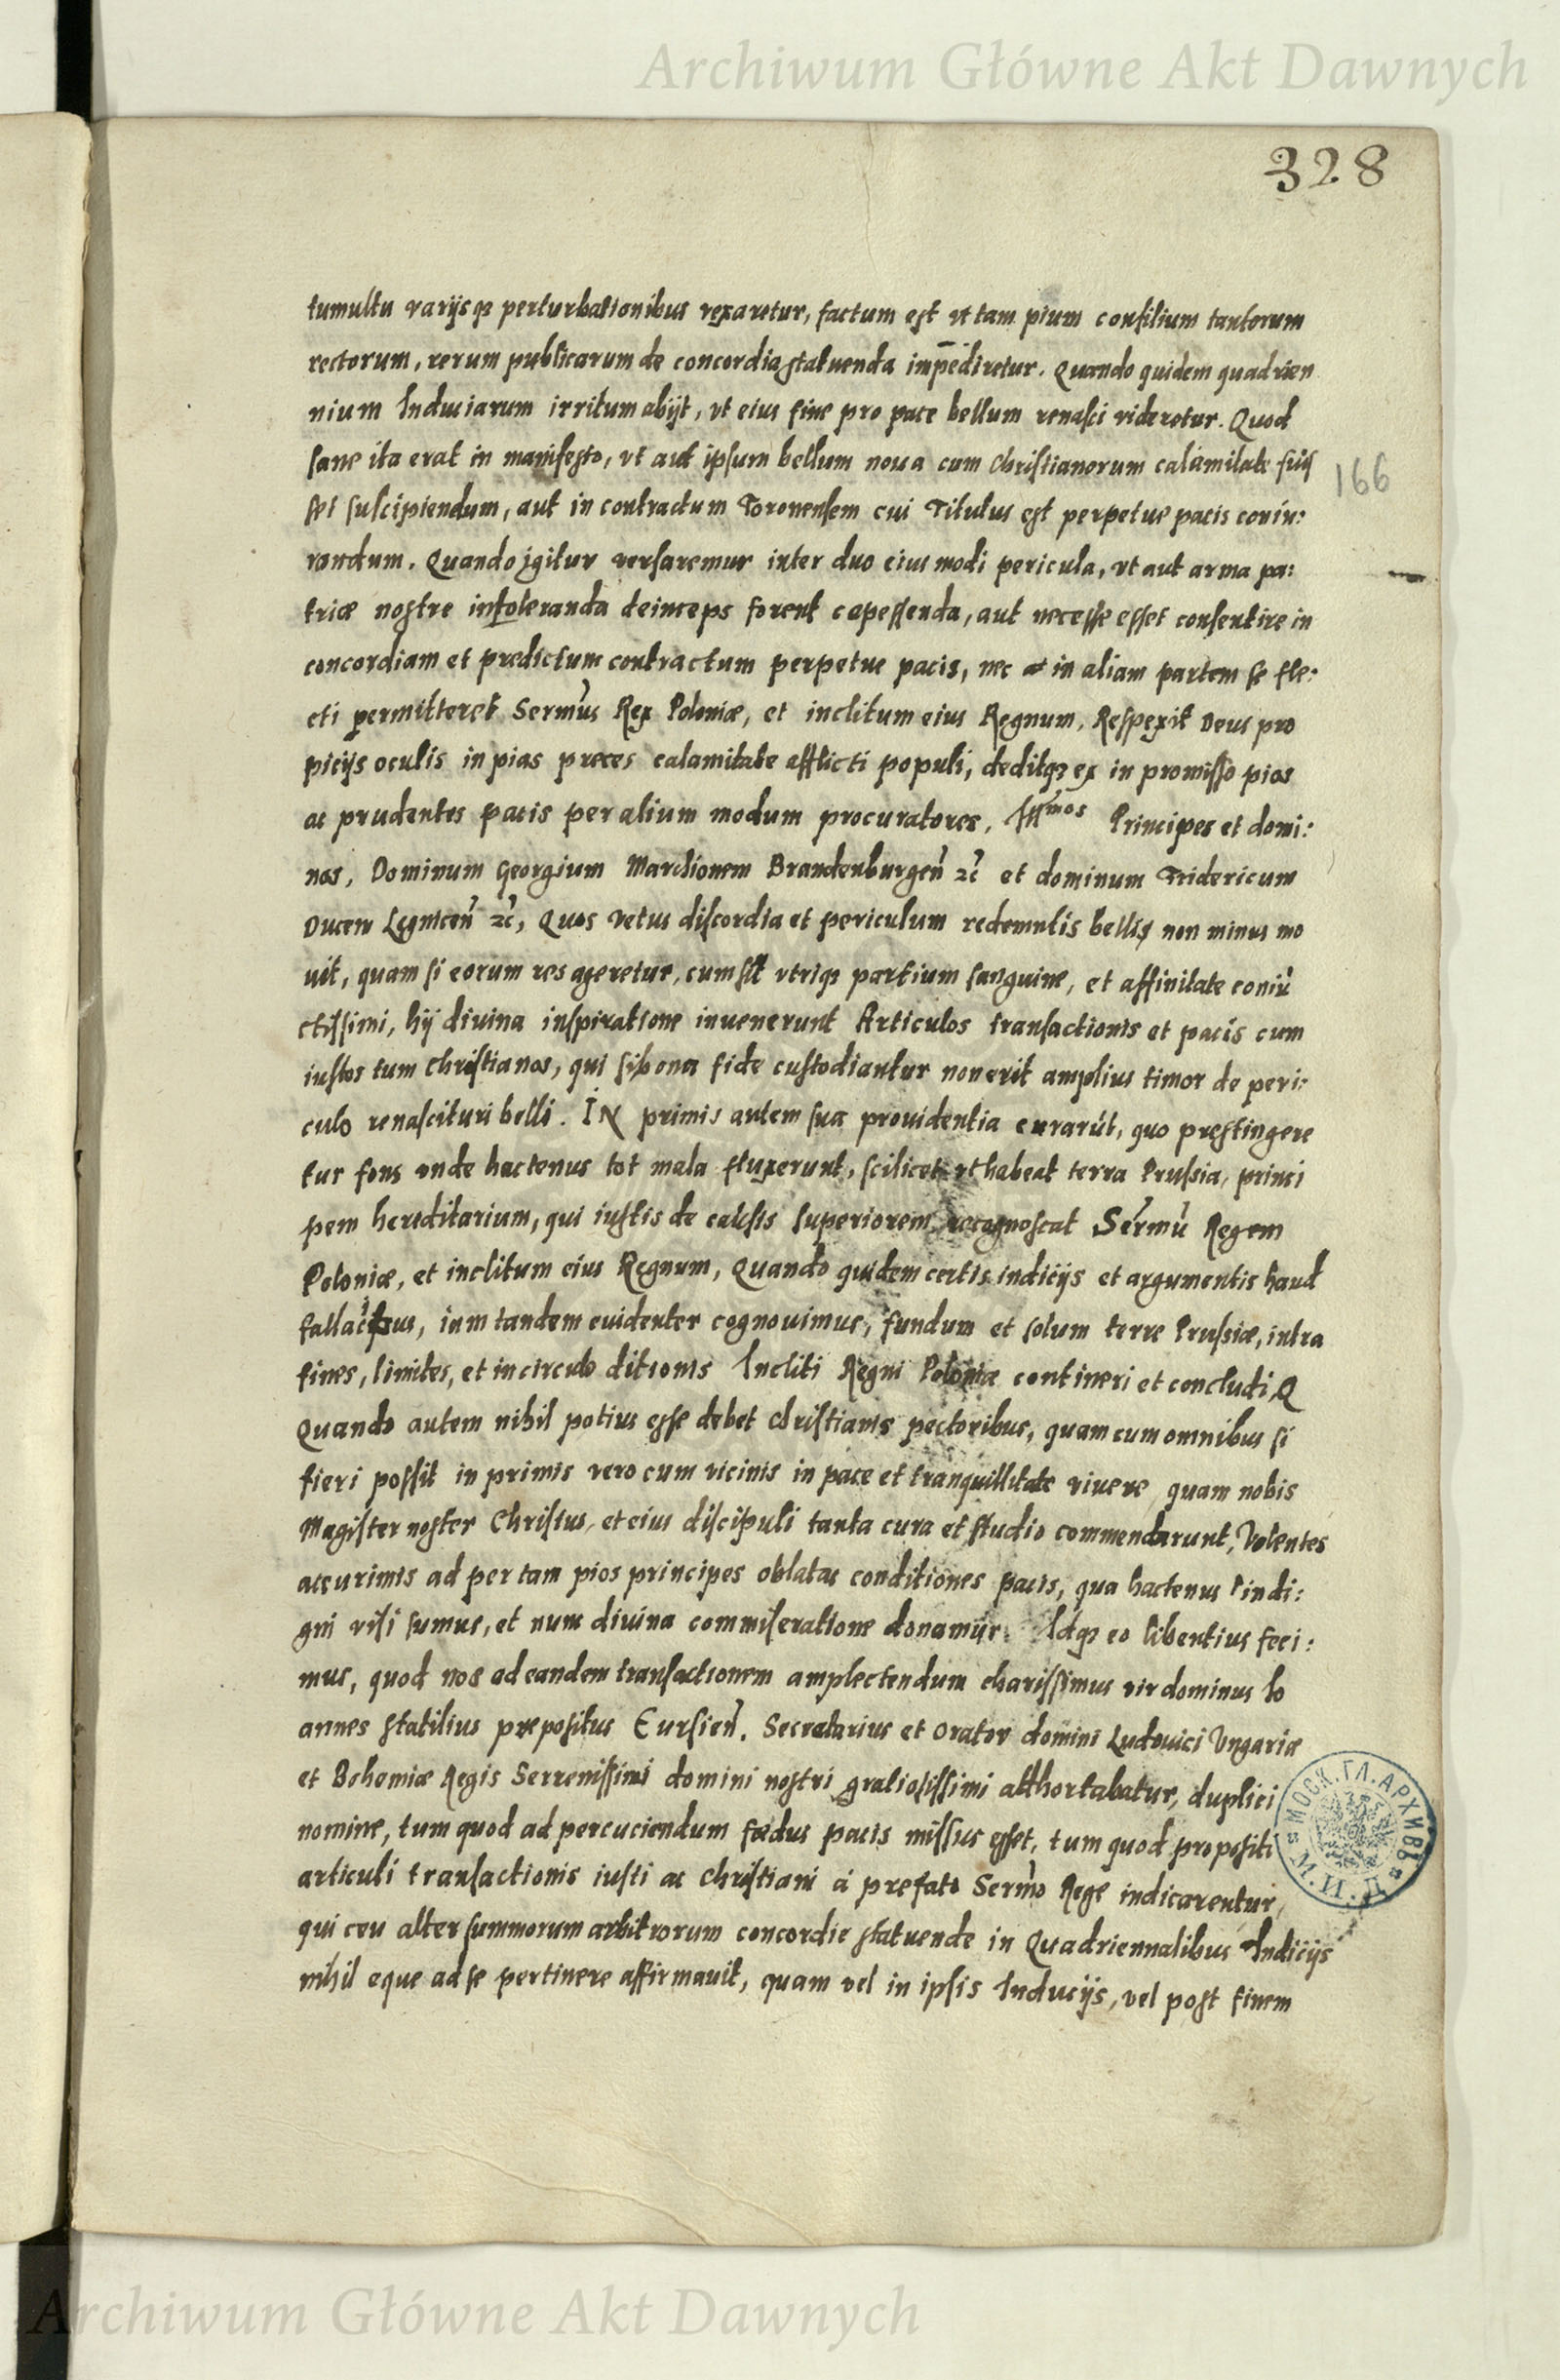 Archiwum Główne Akt Dawnych
328
tumultu varijsqꝫ perturbationibus vexaretur, factum est vt tam pium consilium tantorum
rectorum, rerum publicarum de concordia statuenda impēdiretur. Quando quidem quadrien
nium Induciarum irritum abijt, vt eius fine pro pace bellum renasci videretur. Quod
sane ita erat in manifesto, vt aut ipsum bellum noua cum Christianorum calamitate fuis
set suscipiendum, aut in contractum Toronensem cui Titulus est perpetue pacis coniu:
randum. Quando igitur versaremur inter duo eius modi pericula, vt aut arma pa:
triæ nostre intoleranda deinceps forent capessenda, aut necesse esset consentire in
concordiam et predictum contractum perpetue pacis, nec in aliam partem se fle:
cti permitteret Sermus Rex Poloniæ, et inclitum eius Regnum, Respexit Deus pro
picijs oculis in pias preces calamitate afflicti populi, deditqꝫ ex in promisso pios
ac prudentes pacis per alium modum procuratores, Illmos Principes et domi:
nos, Dominum Georgium Marchionem Brandenburgen̄ ⁊c̄ et dominum Fridericum
Ducem Legnicen̄ ⁊c̄, Quos vetus discordia et periculum redemutis bellis non minus mo
uit, quam si eorum res ageretur, cum sīt vtriqꝫ partium sanguine, et affinitate coniū
ctissimi, hij diuina inspiratione inuenerunt Articulos transactionis et pacis cum
iustos tum Christianos, qui si bona fide custodiantur non erit amplius timor de peri:
culo renascituri belli. IN primis autem sua prouidentia curarūt, quo prestingere
tur fons onde hactenus tot mala fluxerunt, scilicet vt habeat terra Prussia, princi
pem hereditarium, qui iustis de causis superiorem recognoscat Sermū Regem
Poloniæ, et inclitum eius Regnum, Quando quidem certis indicijs et argumentis haud
fallacibus, iam tandem euidenter cognouimus, fundum et solum terre Prussiæ, intra
fines, limites, et in circulo ditionis Incliti Regni Poloniæ contineri et concludi, Q
Quando autem nihil potius esse debet Christianis pectoribus, quam cum omnibus si
fieri possit in primis vero cum vicinis in pace et tranquillitate viuere quam nobis
Magister noster Christus, et eius discipuli tanta cura et studio commendarunt, Volentes
accurimis ad per tam pios principes oblatas conditiones pacis, qua hactenus indi:
gni visi sumus, et nunc diuina commiseratione donamur. Idqꝫ eo libentius feci:
mus, quod nos ad eandem transactionem amplectendum charissimus vir dominus Io
annes Statilius prepositus Eursien̄. Secretarius et Orator domini Ludouici Vngariæ
et Bohemiæ Regis Serrenissimi domini nostri gratiosissimi atthortabatur, duplici
nomine, tum quod ad percuciendum fœdus pacis missus esset, tum quod propositi
articuli transactionis iusti ac Christiani à prefato Sermo Rege indicarentur,
qui ceu alter summorum arbitrorum concordie statuende in Quadriennalibus Indicijs
nihil eque ad se pertinere affirmauit, quam vel in ipsis Inducijs, vel post finem
166
МОСК. ГЛ. АРХИВЪ М. И. Д.
Archiwum Główne Akt Dawnych